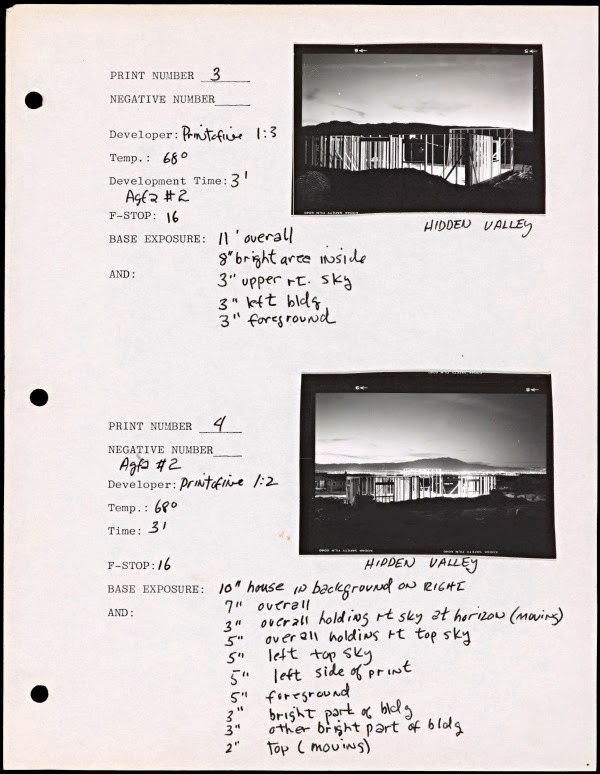 PRINT NUMBER 3
NEGATIVE NUMBER
Developer: Printofine 1:3
Temp.: 68°
Development Time: 3'
Agfa #2
F-STOP: 16
HIDDEN VALLEY
BASE EXPOSURE: 11' overall
8" bright area inside
AND: 3" upper rt. sky
3" left bldg
3" foreground
PRINT NUMBER 4
NEGATIVE NUMBER
Agfa #2
Developer: Printofine 1:2
Temp.: 68°
Time: 3'
F-STOP: 16
HIDDEN VALLEY
BASE EXPOSURE: 10" house in background on RIGHT
7" overall
AND: 3" overall holding rt sky at horizon (moving)
5" overall holding rt top sky
5" left top sky
5" left side of print
5" foreground
3" bright part of bldg
3" other bright part of bldg
2" top (moving)